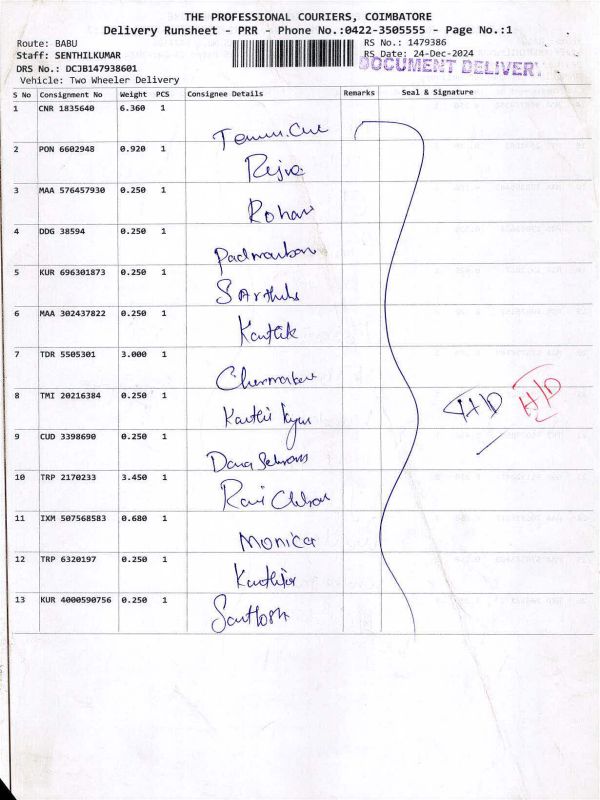 THE PROFESSIONAL COURIERS, COIMBATORE
Delivery Runsheet - PRR - Phone No.:0422-3505555 - Page No.:1
Route: BABU
RS No.: 1479386
Staff: SENTHILKUMAR
RS Date: 24-Dec-2024
DRS No.: DCJB147938601
DOCUMENT DELIVERY
Vehicle: Two Wheeler Delivery
S No Consignment No Weight PCS Consignee Details Remarks Seal & Signature
1 CNR 1835640 6.360 1
2 PON 6602948 0.920 1
3 MAA 576457930 0.250 1 Rohan
4 DDG 38594 0.250 1
5 KUR 696301873 0.250 1
6 MAA 302437822 0.250 1 Karthik
7 TDR 5505301 3.000 1
8 TMI 20216384 0.250 1 Karthi
9 CUD 3398690 0.250 1
10 TRP 2170233 3.450 1 Ravi
11 IXM 507568583 0.680 1 Monica
12 TRP 6320197 0.250 1
13 KUR 4000590756 0.250 1 Santhosh
H/D H/D